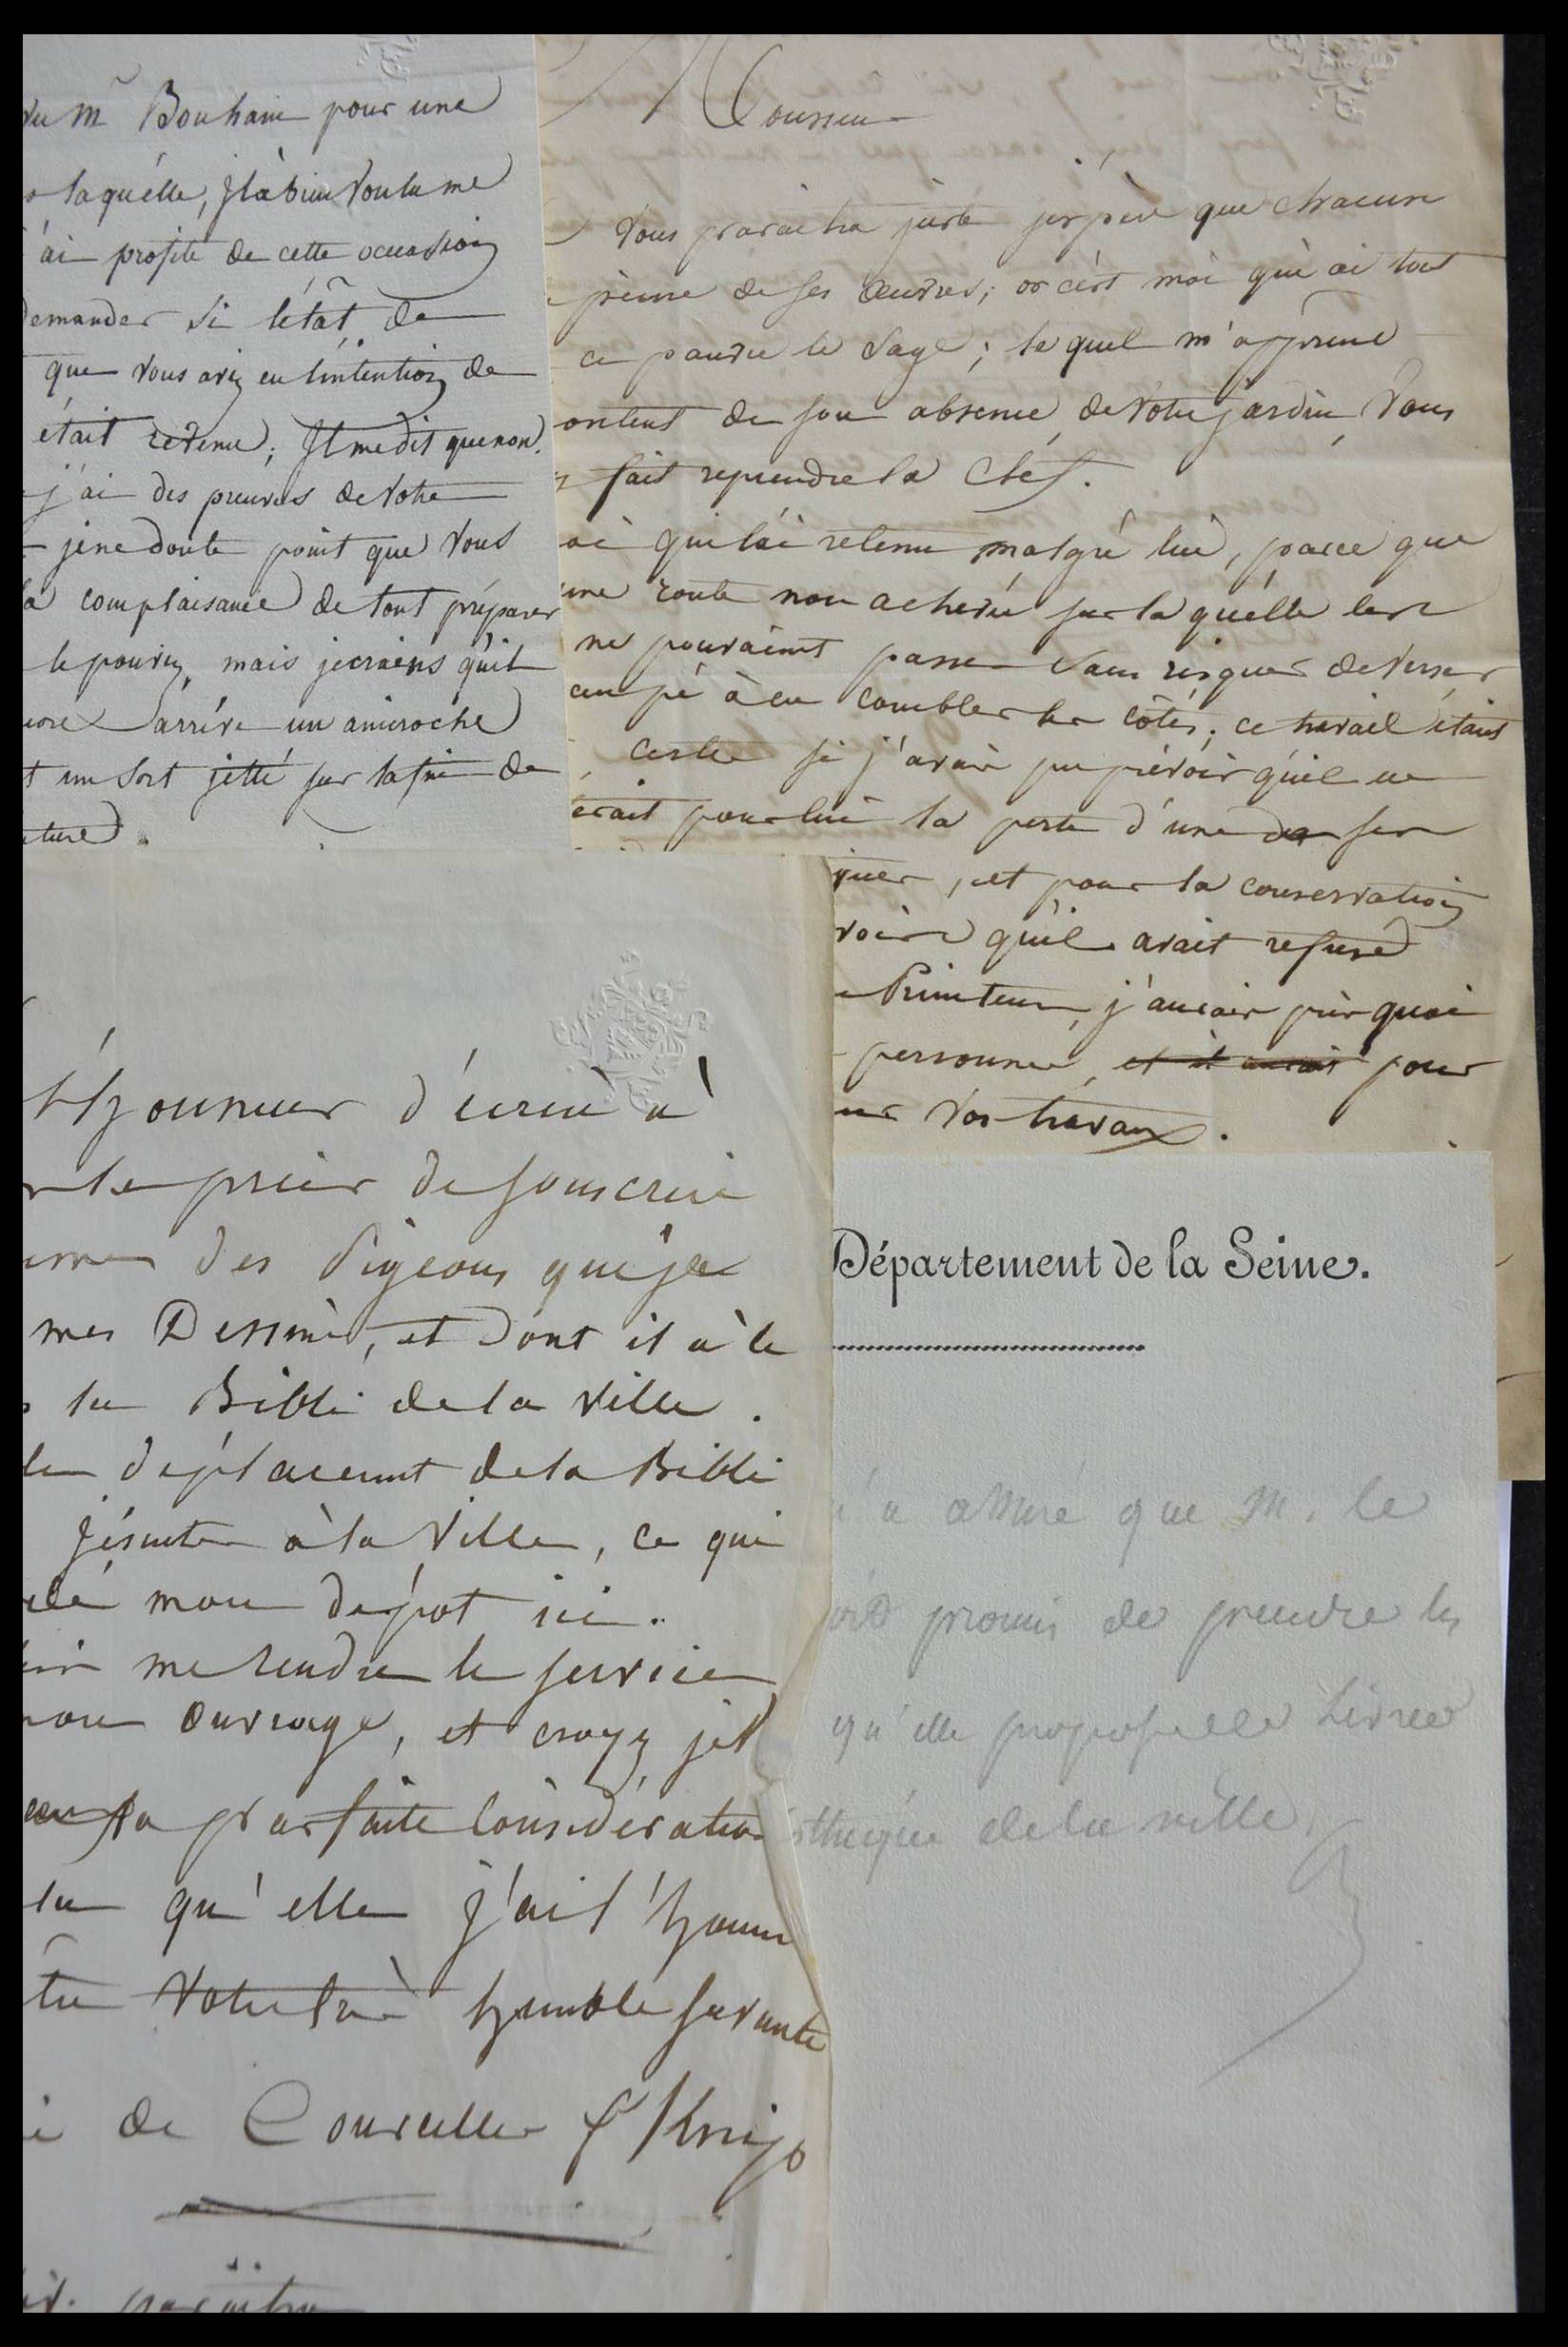 vu Mr Bouhain pour une
laquélle, Il à bien Voulu me
ai profité de cette occasion
demander si l'état de
que vous aviez eu l'intention de
était revenu; Il me dit que non.
j'ai des preuves de votre
je ne doute point que vous
la complaisance de tout préparer
le pourez, mais je crains qu'il
arrive un anicroche
un sort jetté sur la fin de
Monsieur
Vous paraitra juste j'espère que chacune
peine de ses œuvres; or c'est moi qui ai tout
ce pauvre le Sage; le quel m'apprend
content de son absence de votre jardin, Vous
fait reprendre la Clef.
qui l'ai retenu malgré lui, parce que
une route non achevée sur la quélle les
ne pouvaient passer sans risquer de verser
à en combler les côtés; ce travail étant
Certes si j'avais pu prévoir qu'il en
pour lui la perte d'une de ses
, et pour la conservation
qu'il avait refusé
Printems, j'aurais pris quoi
personne, et il aurait pour
vos travaux.
l'honneur d'écrire à
le prier de souscrire
des Pigeons que je
mes Dessins, et dont il à le
la Bibli de la Ville.
le déplacement de la Bibli
Jésuites à la Ville, ce qui
mon dépot ici.
me rendre le service
mon ouvrage, et croyez je
la parfaite Considération
la qu'elle j'ai l'honneur
votre très humble servante
de Courcelles f Knip
Département de la Seine.
a assuré que M. le
promis de prendre les
qu'elle propose de livrer
de la ville.